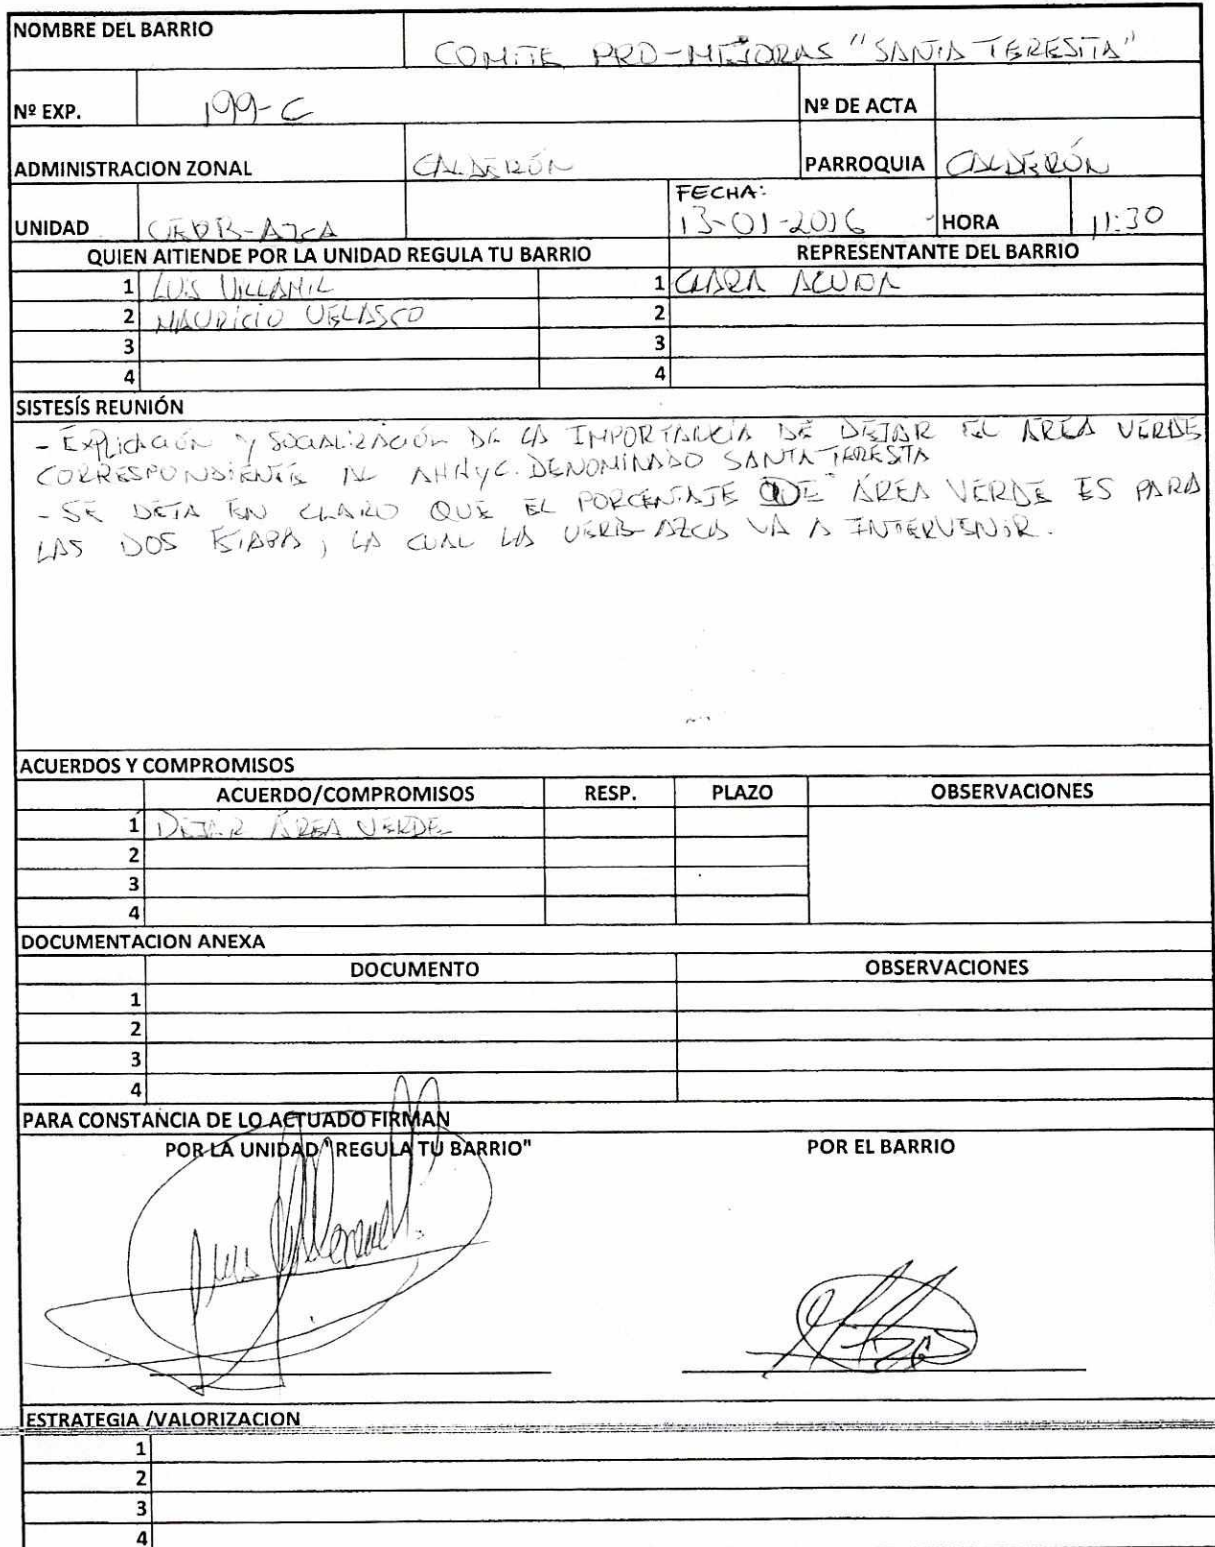 NOMBRE DEL BARRIO COMITE PRO-MEJORAS "SANTA TERESITA"
Nº EXP. 199-C Nº DE ACTA
ADMINISTRACION ZONAL CALDERÓN PARROQUIA CALDERÓN
FECHA:
UNIDAD UERB-AZCA 13-01-2016 HORA 11:30
QUIEN AITIENDE POR LA UNIDAD REGULA TU BARRIO REPRESENTANTE DEL BARRIO
1 LUIS VILLAMIL 1 CLARA
2 MAURICIO VELASCO 2
3 3
4 4
SISTESÍS REUNIÓN
- EXPLICACIÓN Y SOCIALIZACIÓN DE LA IMPORTANCIA DE DEJAR EL ÁREA VERDE
CORRESPONDIENTE AL AHHYC. DENOMINADO SANTA TERESTA
- SE DEJA EN CLARO QUE EL PORCENTAJE DE ÁREA VERDE ES PARA
LAS DOS ETAPA, LA CUAL LA UERB-AZCA VA A INTERVENIR.
ACUERDOS Y COMPROMISOS
ACUERDO/COMPROMISOS RESP. PLAZO OBSERVACIONES
1 DEJAR ÁREA VERDE
2
3
4
DOCUMENTACION ANEXA
DOCUMENTO OBSERVACIONES
1
2
3
4
PARA CONSTANCIA DE LO ACTUADO FIRMAN
POR LA UNIDAD "REGULA TU BARRIO" POR EL BARRIO
ESTRATEGIA /VALORIZACION
1
2
3
4